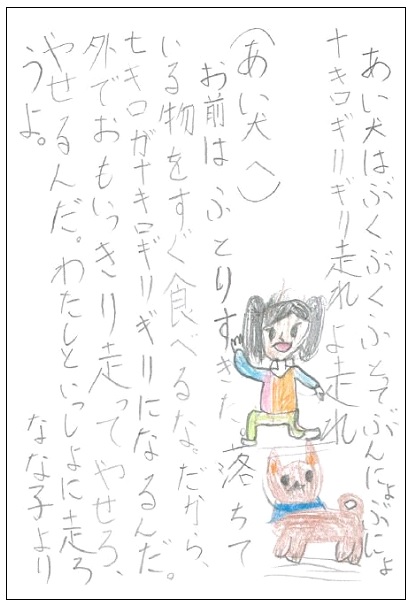 あい犬はぶくぶくふとてぶんにょぶにょ
ナキロギリギリ走れよ走れ
(あい犬へ)
お前はふとりすぎた。落ちて
いる物をすぐ食べるな。だから、
七キロがナキロギリギリになるんだ。
外でおもいっきり走ってやせろ、
やせるんだ。わたしといっしょに走ろ
うよ。
なな子より